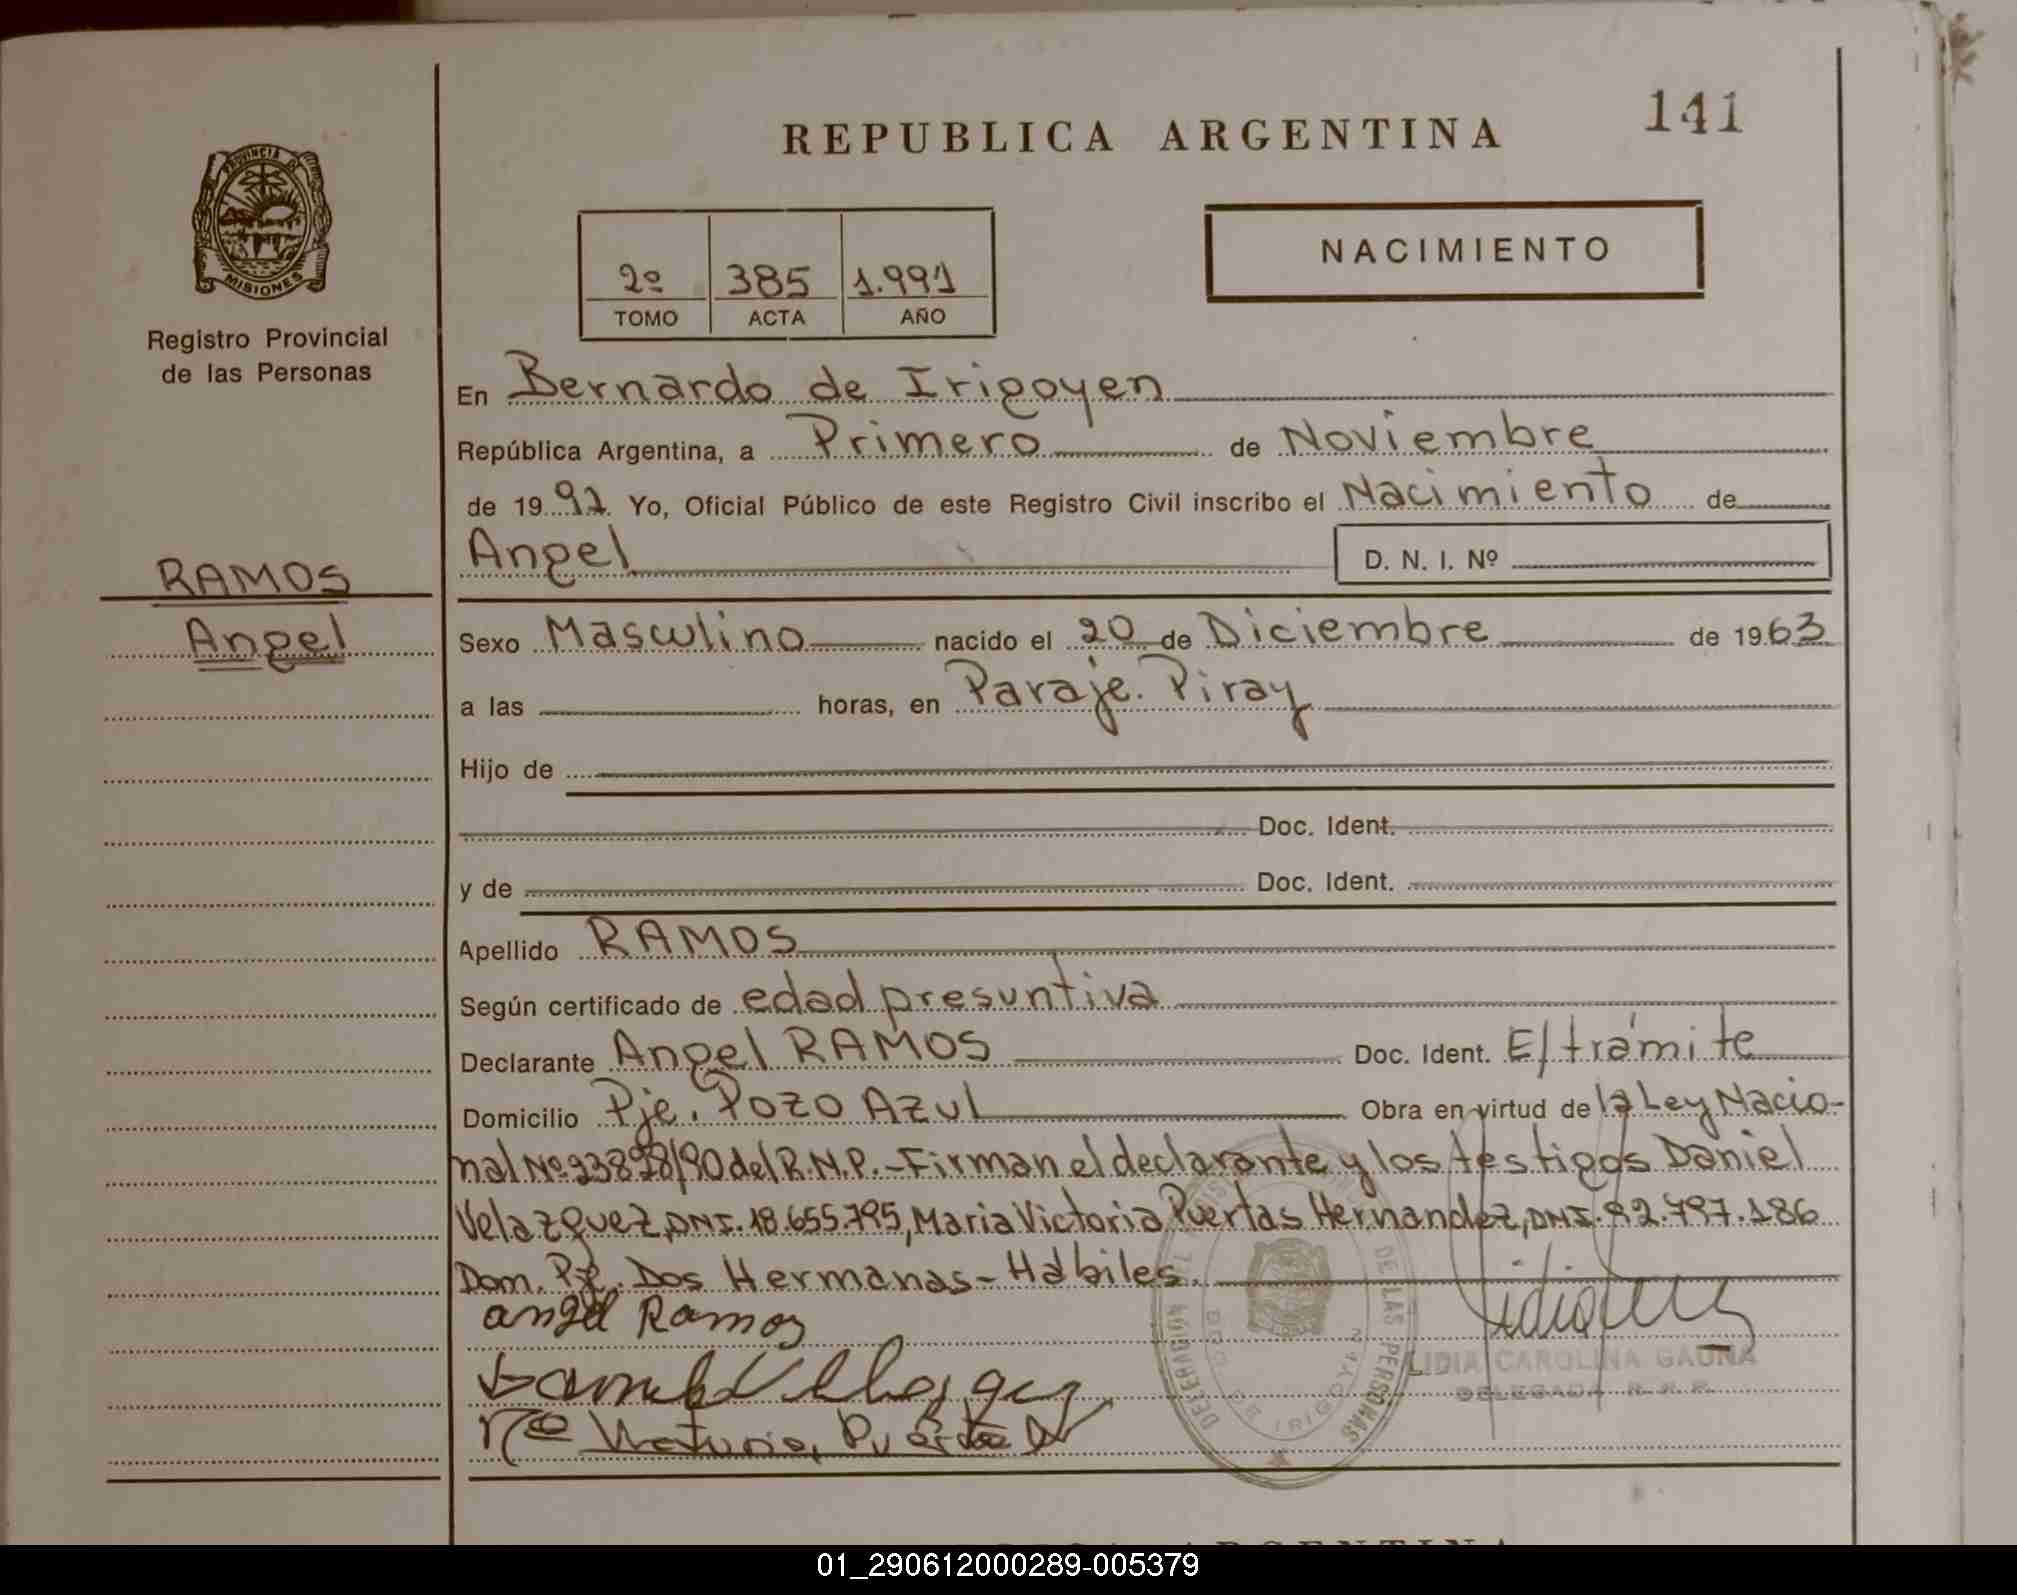 141
REPUBLICA ARGENTINA
PROVINCIA DE
MISIONES
NACIMIENTO
2º 385 1.991
TOMO ACTA AÑO
Registro Provincial
de las Personas
En Bernardo de Irigoyen
República Argentina, a Primero de Noviembre
de 19 91 Yo, Oficial Público de este Registro Civil inscribo el Nacimiento de
Angel D. N. I. Nº
RAMOS
Angel
Sexo Masculino nacido el 20 de Diciembre de 1963
a las horas, en Paraje. Piray
Hijo de
Doc. Ident.
y de Doc. Ident.
Apellido RAMOS
Según certificado de edad presuntiva
Declarante Angel RAMOS Doc. Ident. E/trámite
Domicilio Pje. Pozo Azul Obra en virtud de la Ley Nacio-
nal Nº 23898/90 del R.N.P.-Firman el declarante y los testigos Daniel
Velazquez, DNI. 18.655.795, Maria Victoria Puertas Hernandez, DNI. 92.797.186
Dom. Pje. Dos Hermanas - Hábiles.
angel Ramos
LIDIA CAROLINA GAUNA
DELEGADA R.P.P.
DE LAS PERSONAS
DE IRIGOYEN
REPUBLICA ARGENTINA
01_290612000289-005379